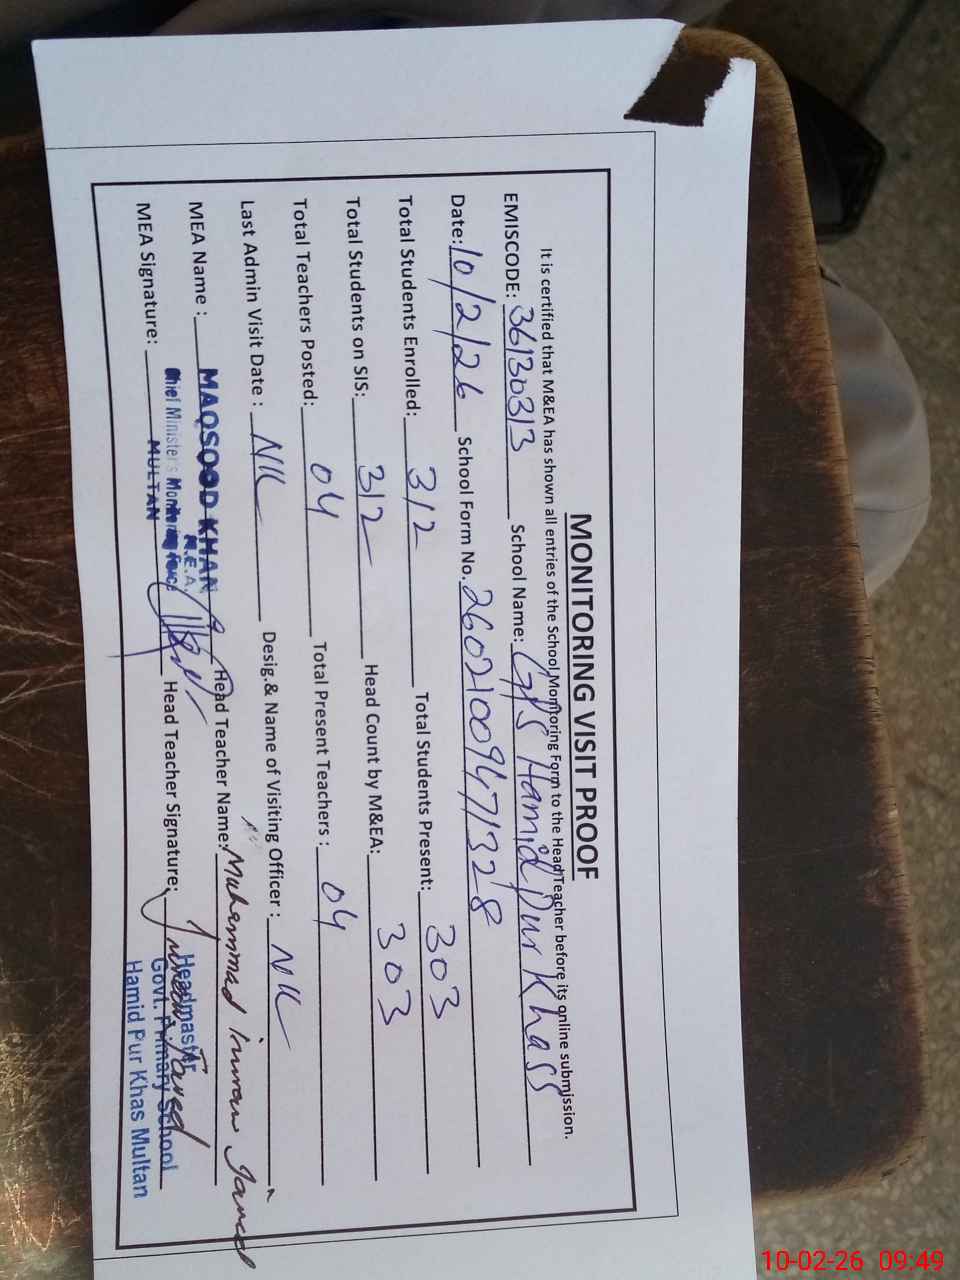 MONITORING VISIT PROOF
It is certified that M&EA has shown all entries of the School Monitoring Form to the Head Teacher before its online submission.
EMISCODE: 36130313 School Name: GPS Hamid Pur Khass
Date: 10/2/26 School Form No. 26021009471328
Total Students Enrolled: 312 Total Students Present: 303
Total Students on SIS: 312 Head Count by M&EA: 303
Total Teachers Posted: 04 Total Present Teachers : 04
Last Admin Visit Date : Nil Desig.& Name of Visiting Officer : Nil
MEA Name : MAQSOOD KHAN Head Teacher Name: Muhammad Imran Javed
M.E.A.
Chief Minister's Monitoring Force
MULTAN
MEA Signature: Head Teacher Signature: Imran Javed
Headmaster
Govt. Primary School
Hamid Pur Khas Multan
10-02-26 09:49